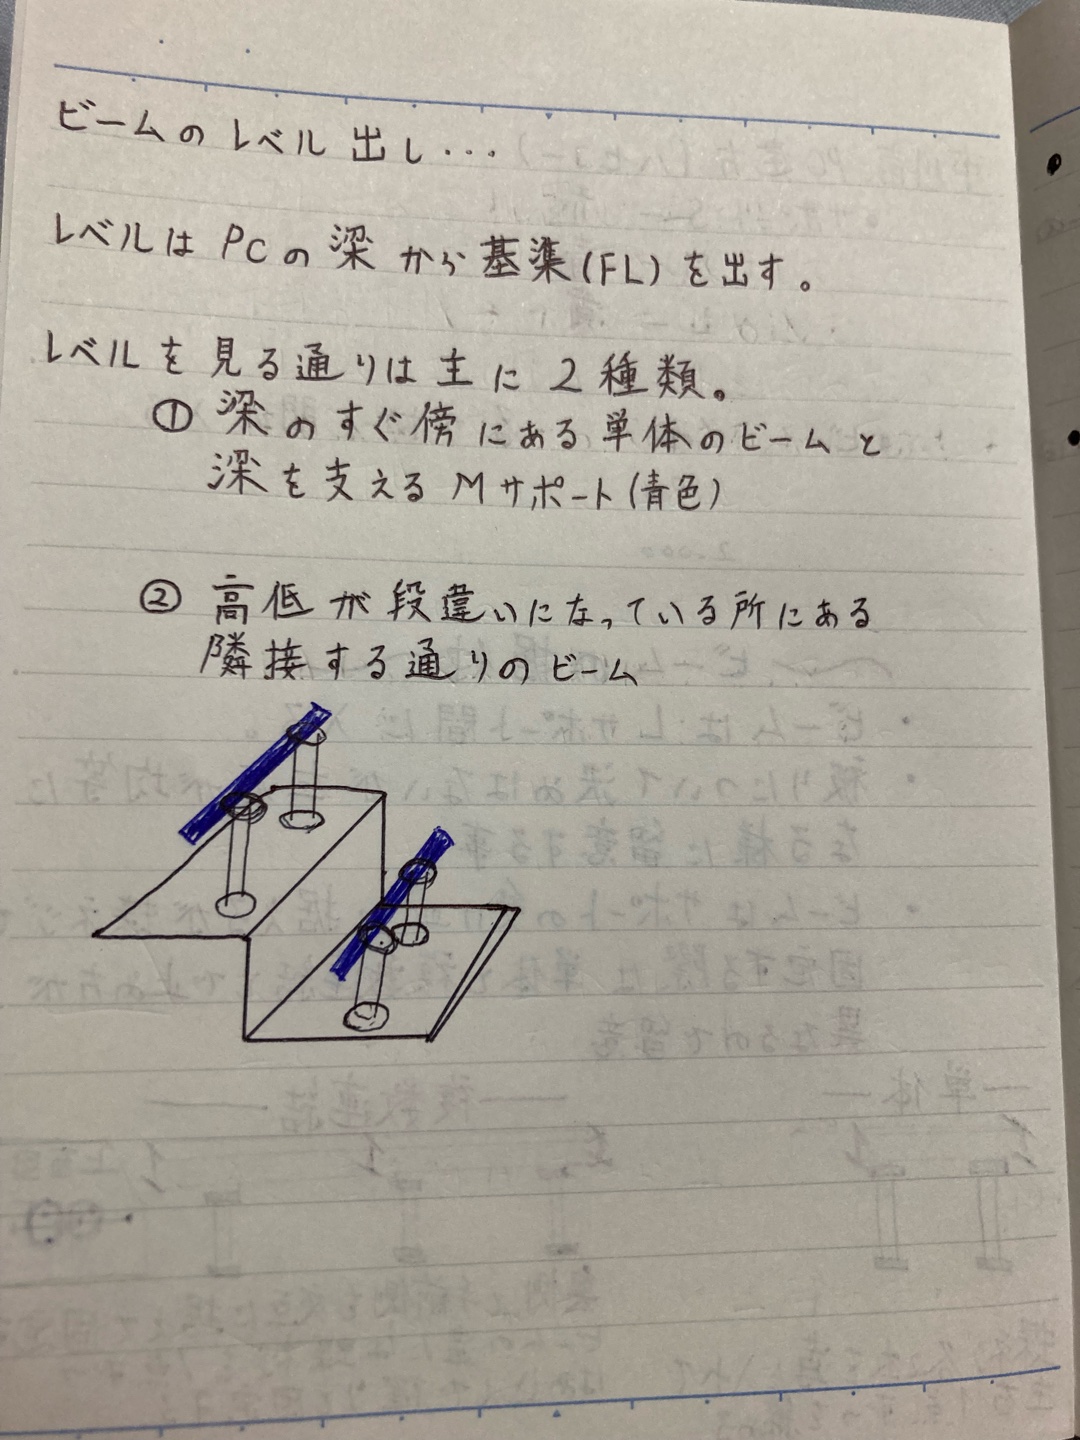 ビームのレベル出し・・・
レベルはPCの梁から基準(FL)を出す。
レベルを見る通りは主に2種類。
① 梁のすぐ傍にある単体のビームと
梁を支えるMサポート(青色)
② 高低が段違いになっている所にある
隣接する通りのビーム